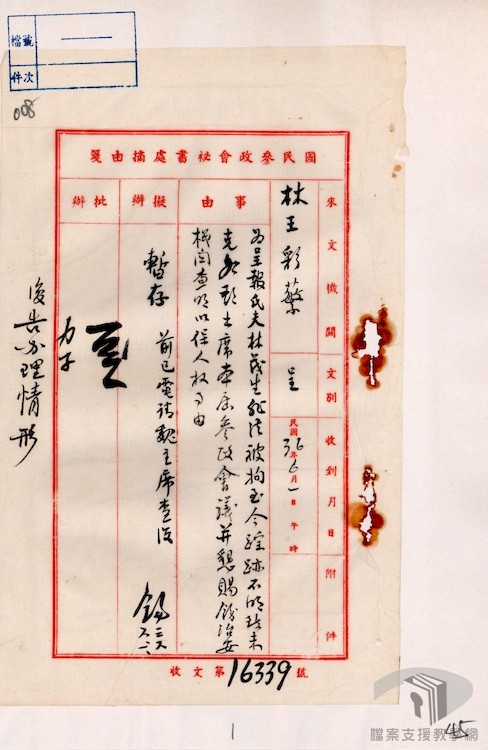 檔號
件次
008
國民參政會祕書處摘由箋
來文機關
林王彩蘩
文別
呈
收到月日
民國36年6月1日午時
附件
事由
為呈報氏夫林茂生非法被拘至今踪跡不明致未
克如期出席本屆參政會議并懇賜飭治安
機関查明以保人权事由
擬辦
暫存
前已電請魏主席查復
批辦
力子
復告办理情形
收文第16339號
1
45
檔案支援教學網